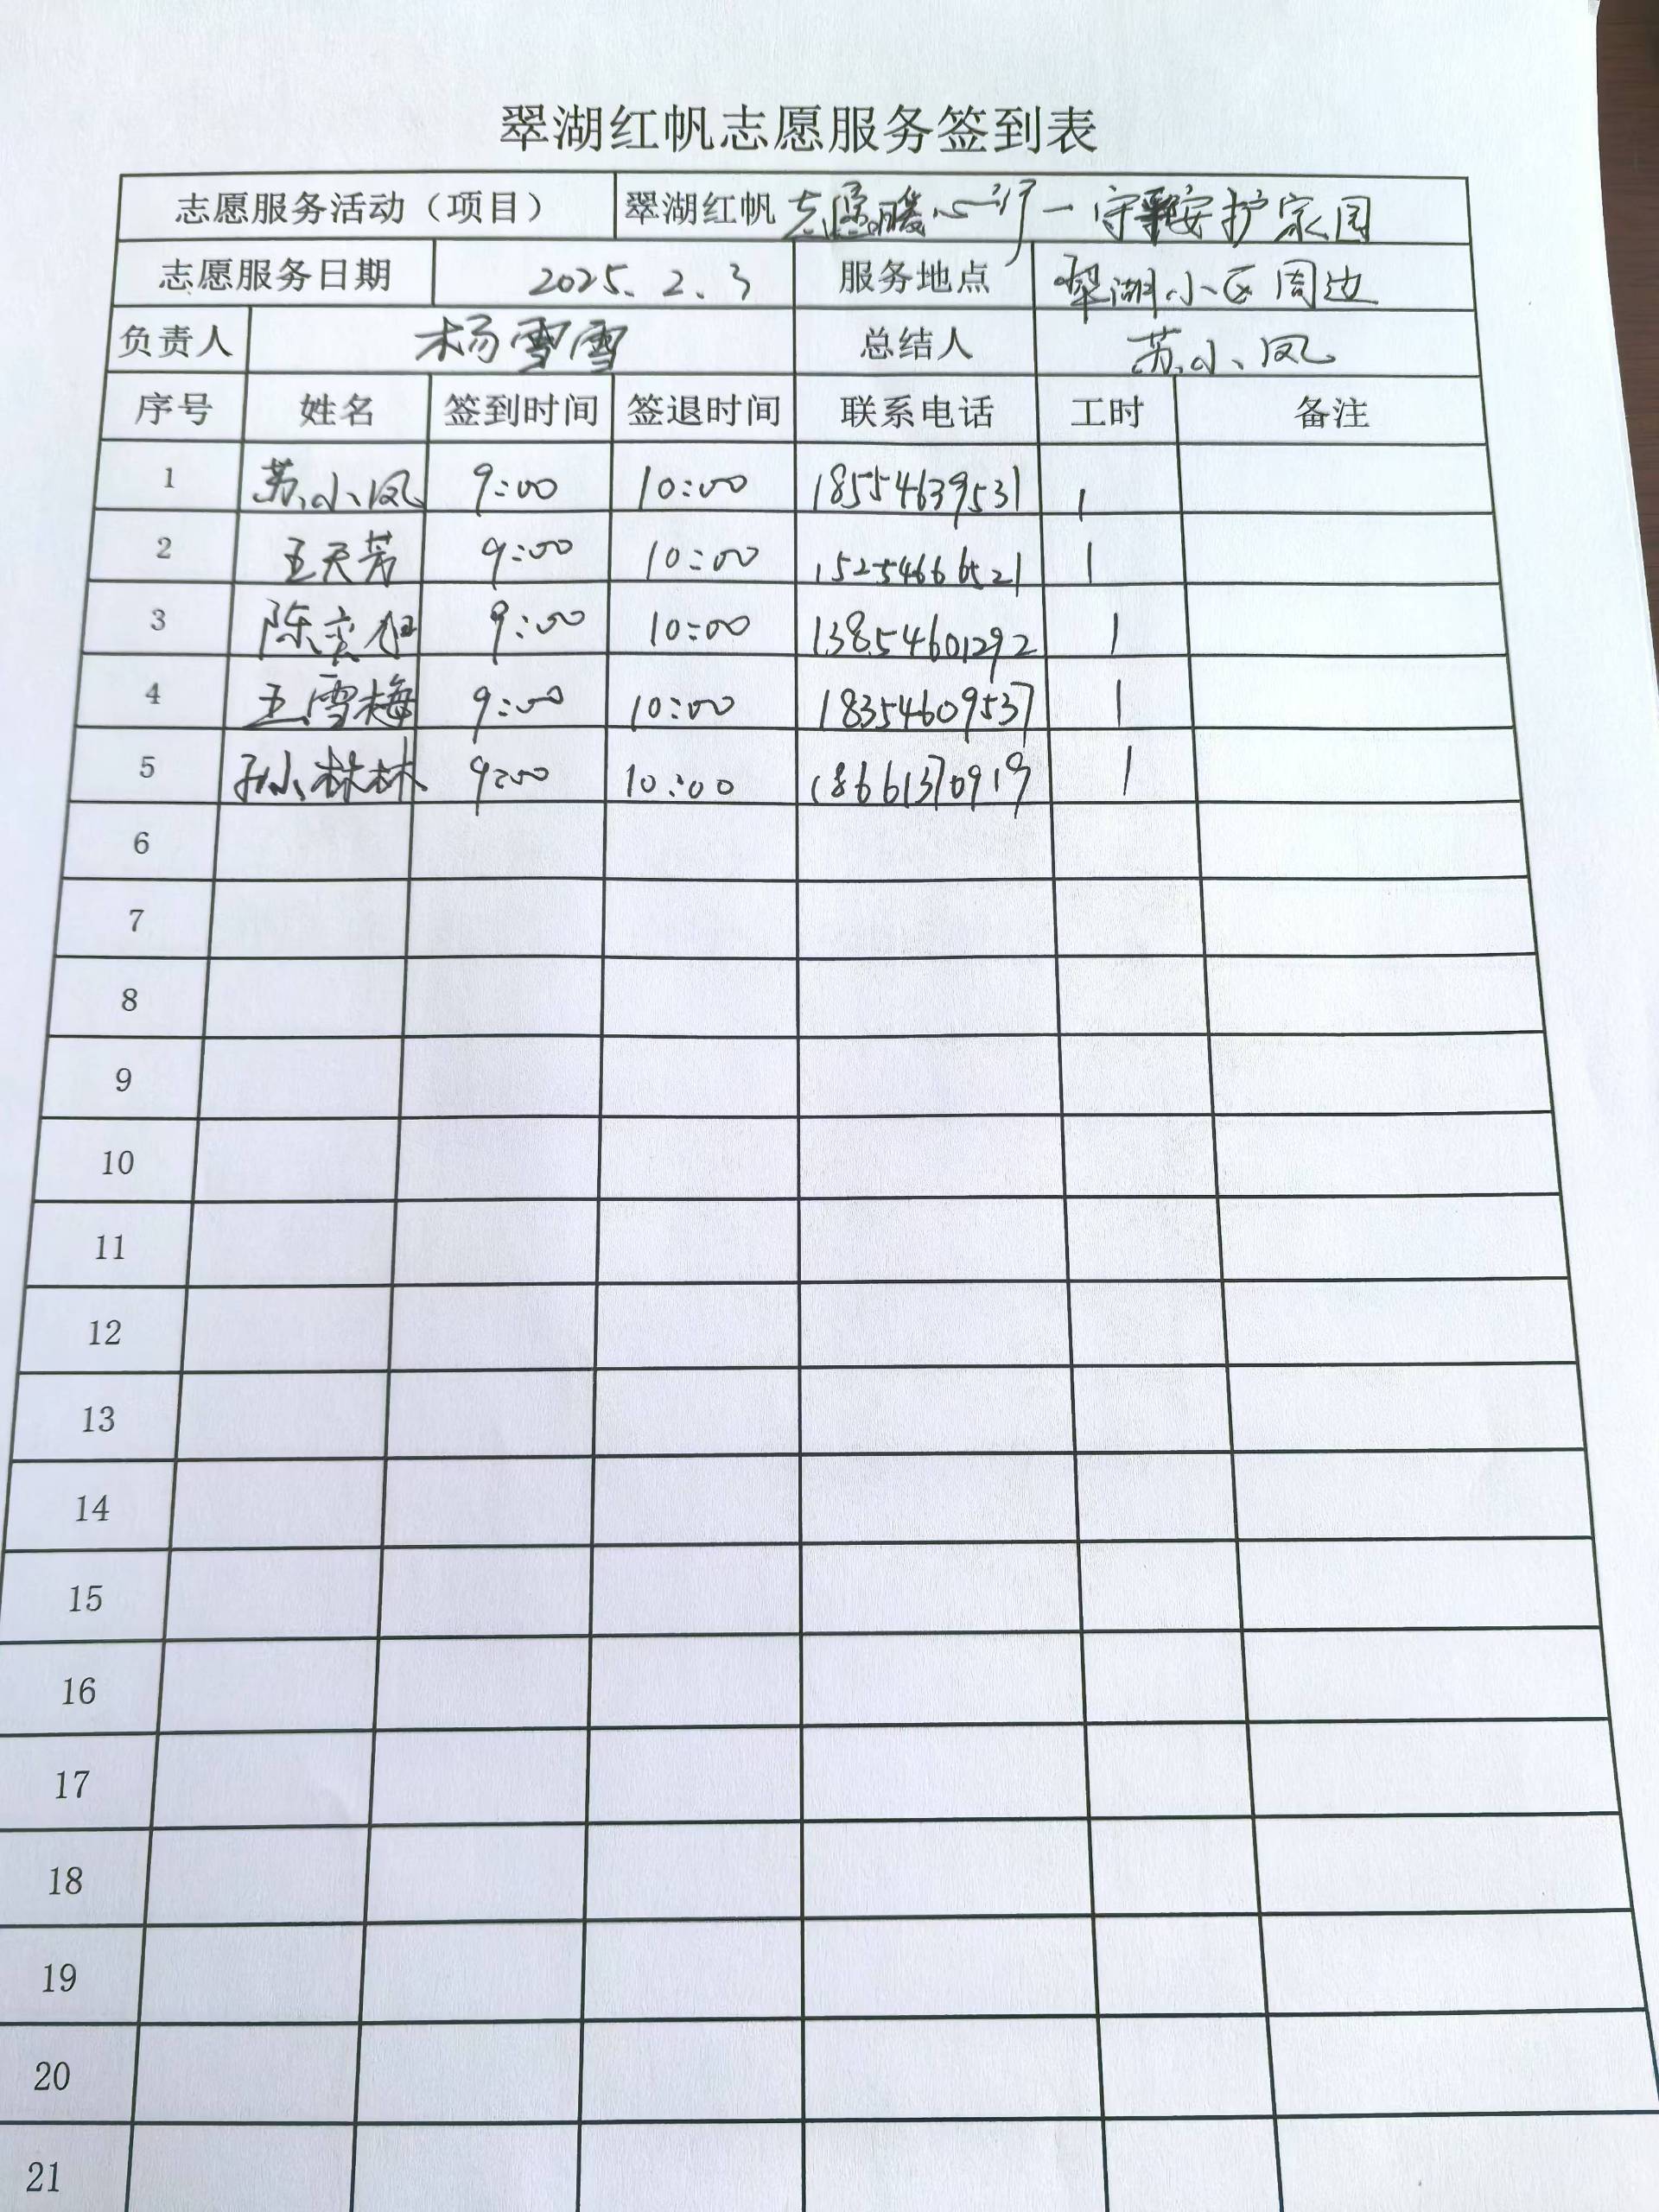 翠湖红帆志愿服务签到表
志愿服务活动（项目） 翠湖红帆 志愿暖心行一守安护家园
志愿服务日期 2025.2.3 服务地点 翠湖小区周边
负责人 杨雪雪 总结人 苏小凤
序号 姓名 签到时间 签退时间 联系电话 工时 备注
1 苏小凤 9:00 10:00 18554639531 1
2 王天芳 9:00 10:00 15254666521 1
3 陈 9:00 10:00 13854601292 1
4 王雪梅 9:00 10:00 18354609537 1
5 孙林林 9:00 10:00 18661370919 1
6
7
8
9
10
11
12
13
14
15
16
17
18
19
20
21